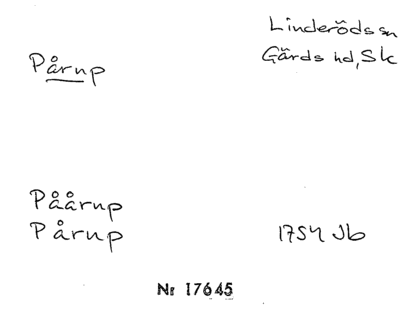 Linderöds sn
Pårup
Gärds hd, Sk
Påårup
Pårup
1754 Jb
Nr 17645